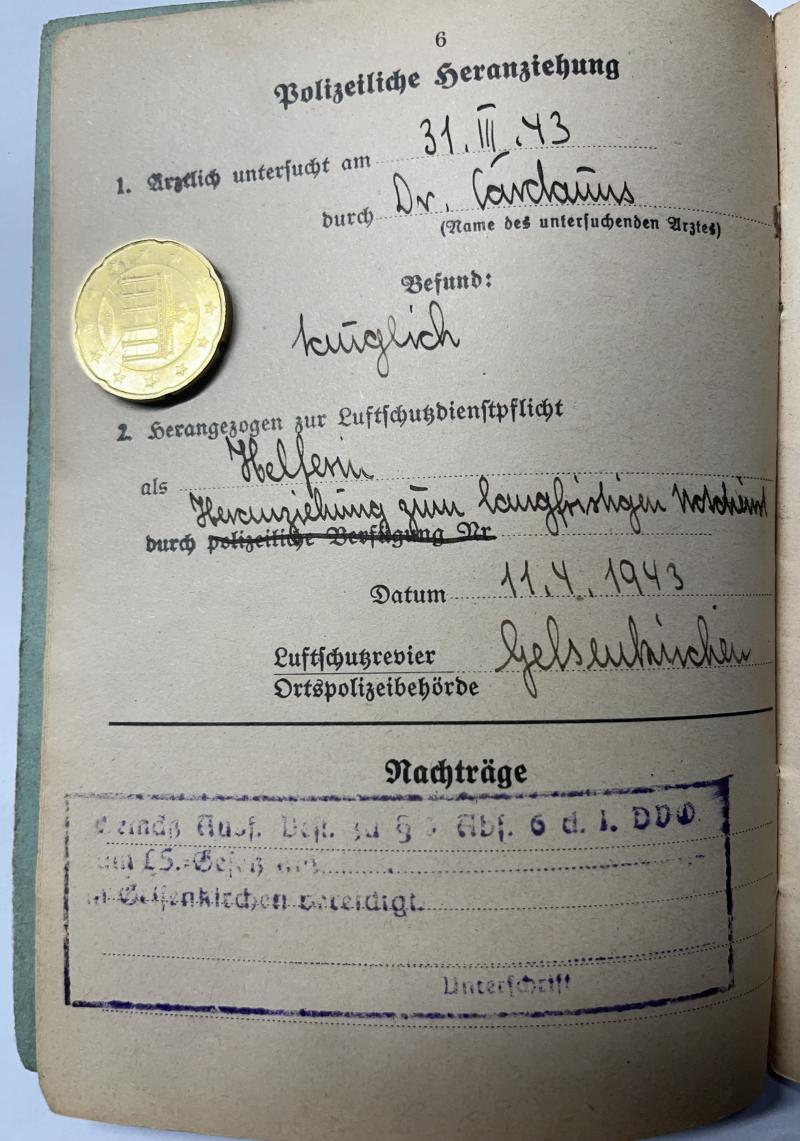 6
Polizeiliche Heranziehung
1. Ärztlich untersucht am 31.III.43
durch Dr. Cardauns
(Name des untersuchenden Arztes)
Befund:
tauglich
2. Herangezogen zur Luftschutzdienstpflicht
als Helferin
Heranziehung zum langfristigen Notdienst
durch polizeiliche Verfügung Nr
Datum 11.4.1943
Luftschutzrevier Gelsenkirchen
Ortspolizeibehörde
Nachträge
Ausf. Best. zu § Abs. 6 d. I. DVO
LS.-Gesetz
in Gelsenkirchen vereidigt.
Unterschrift